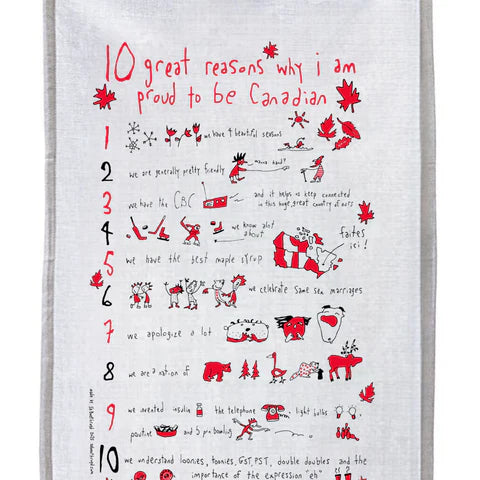 10 great reasons why i am
proud to be Canadian
1 we have 4 beautiful seasons
2 we are generally pretty friendly
3 we have the CBC and it helps us keep connected
in this huge, great country of ours
4 we know alot
about
faites
ici!
5 we have the best maple syrup
6 we celebrate same sex marriages
7 we apologize a lot
8 we are a nation of
9 we invented insulin the telephone light bulbs
poutine and 5 pin bowling
10 we understand loonies, toonies, GST, PST, double doubles and the
importance of the expression "eh"